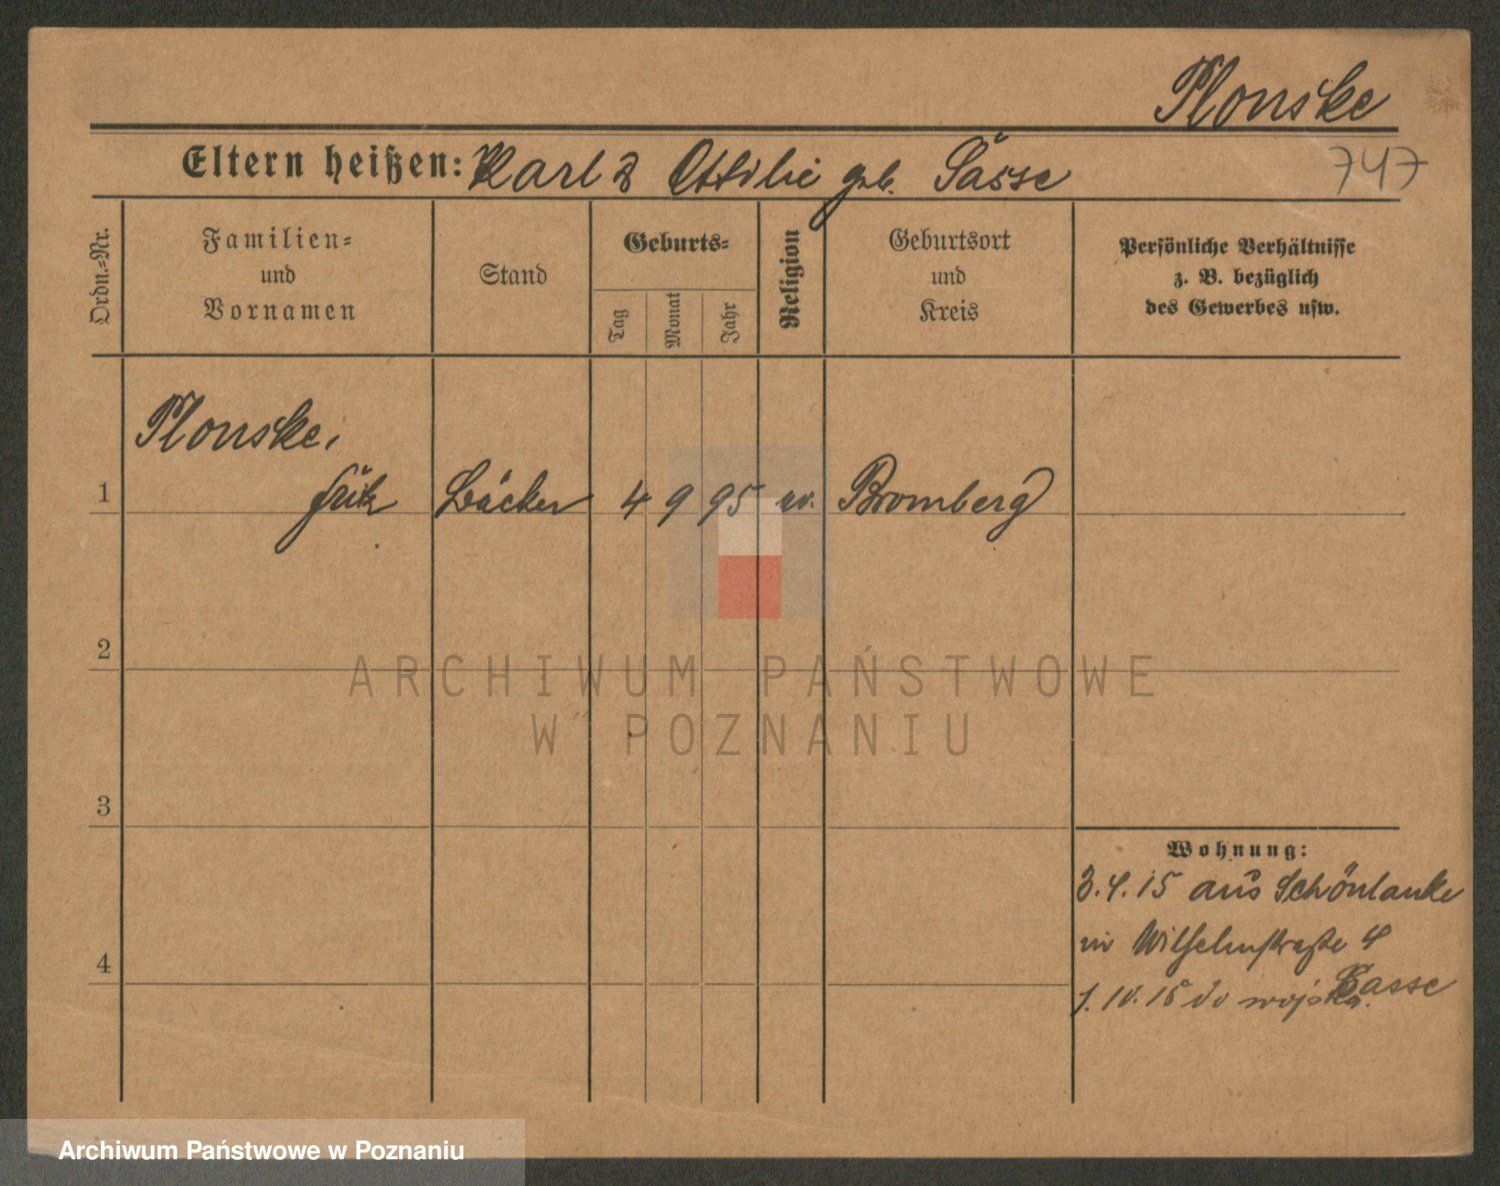 Plonske
Eltern heißen: Karl & Ottilie geb. Sasse
747
Ordn.-Nr.
Familien-
und
Vornamen
Stand
Geburts-
Tag
Monat
Jahr
Religion
Geburtsort
und
Kreis
Persönliche Verhältnisse
z. B. bezüglich
des Gewerbes usw.
Plonske,
1 Fritz Bäcker 4 9 95 ev. Bromberg
2
3
4
Wohnung:
3.4.15 aus Schönlanke
in Wilhelmstraße 4
Sasse
1.10.15 do wojska.
ARCHIWUM PAŃSTWOWE
W POZNANIU
Archiwum Państwowe w Poznaniu